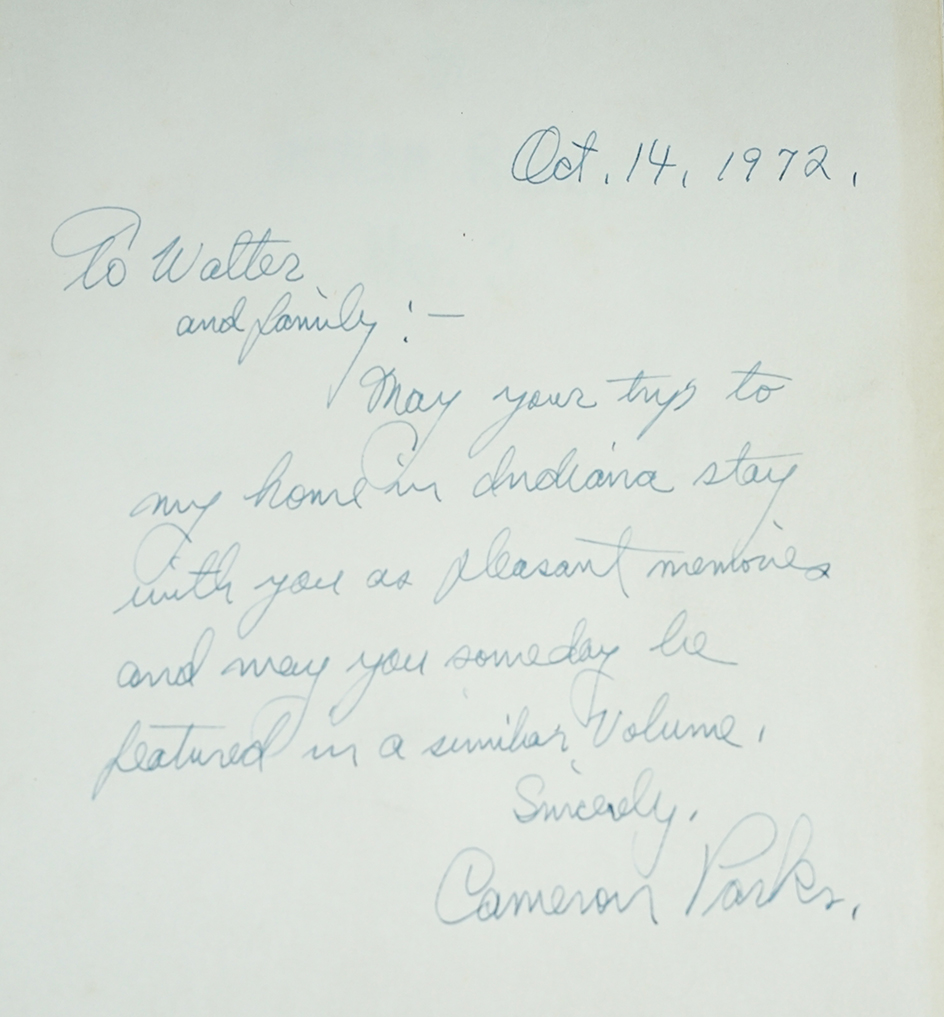 Oct. 14, 1972.
To Walter
and family:—
May your trip to
my home in Indiana stay
with you as pleasant memories
and may you someday be
featured in a similar Volume.
Sincerely,
Cameron Parks.